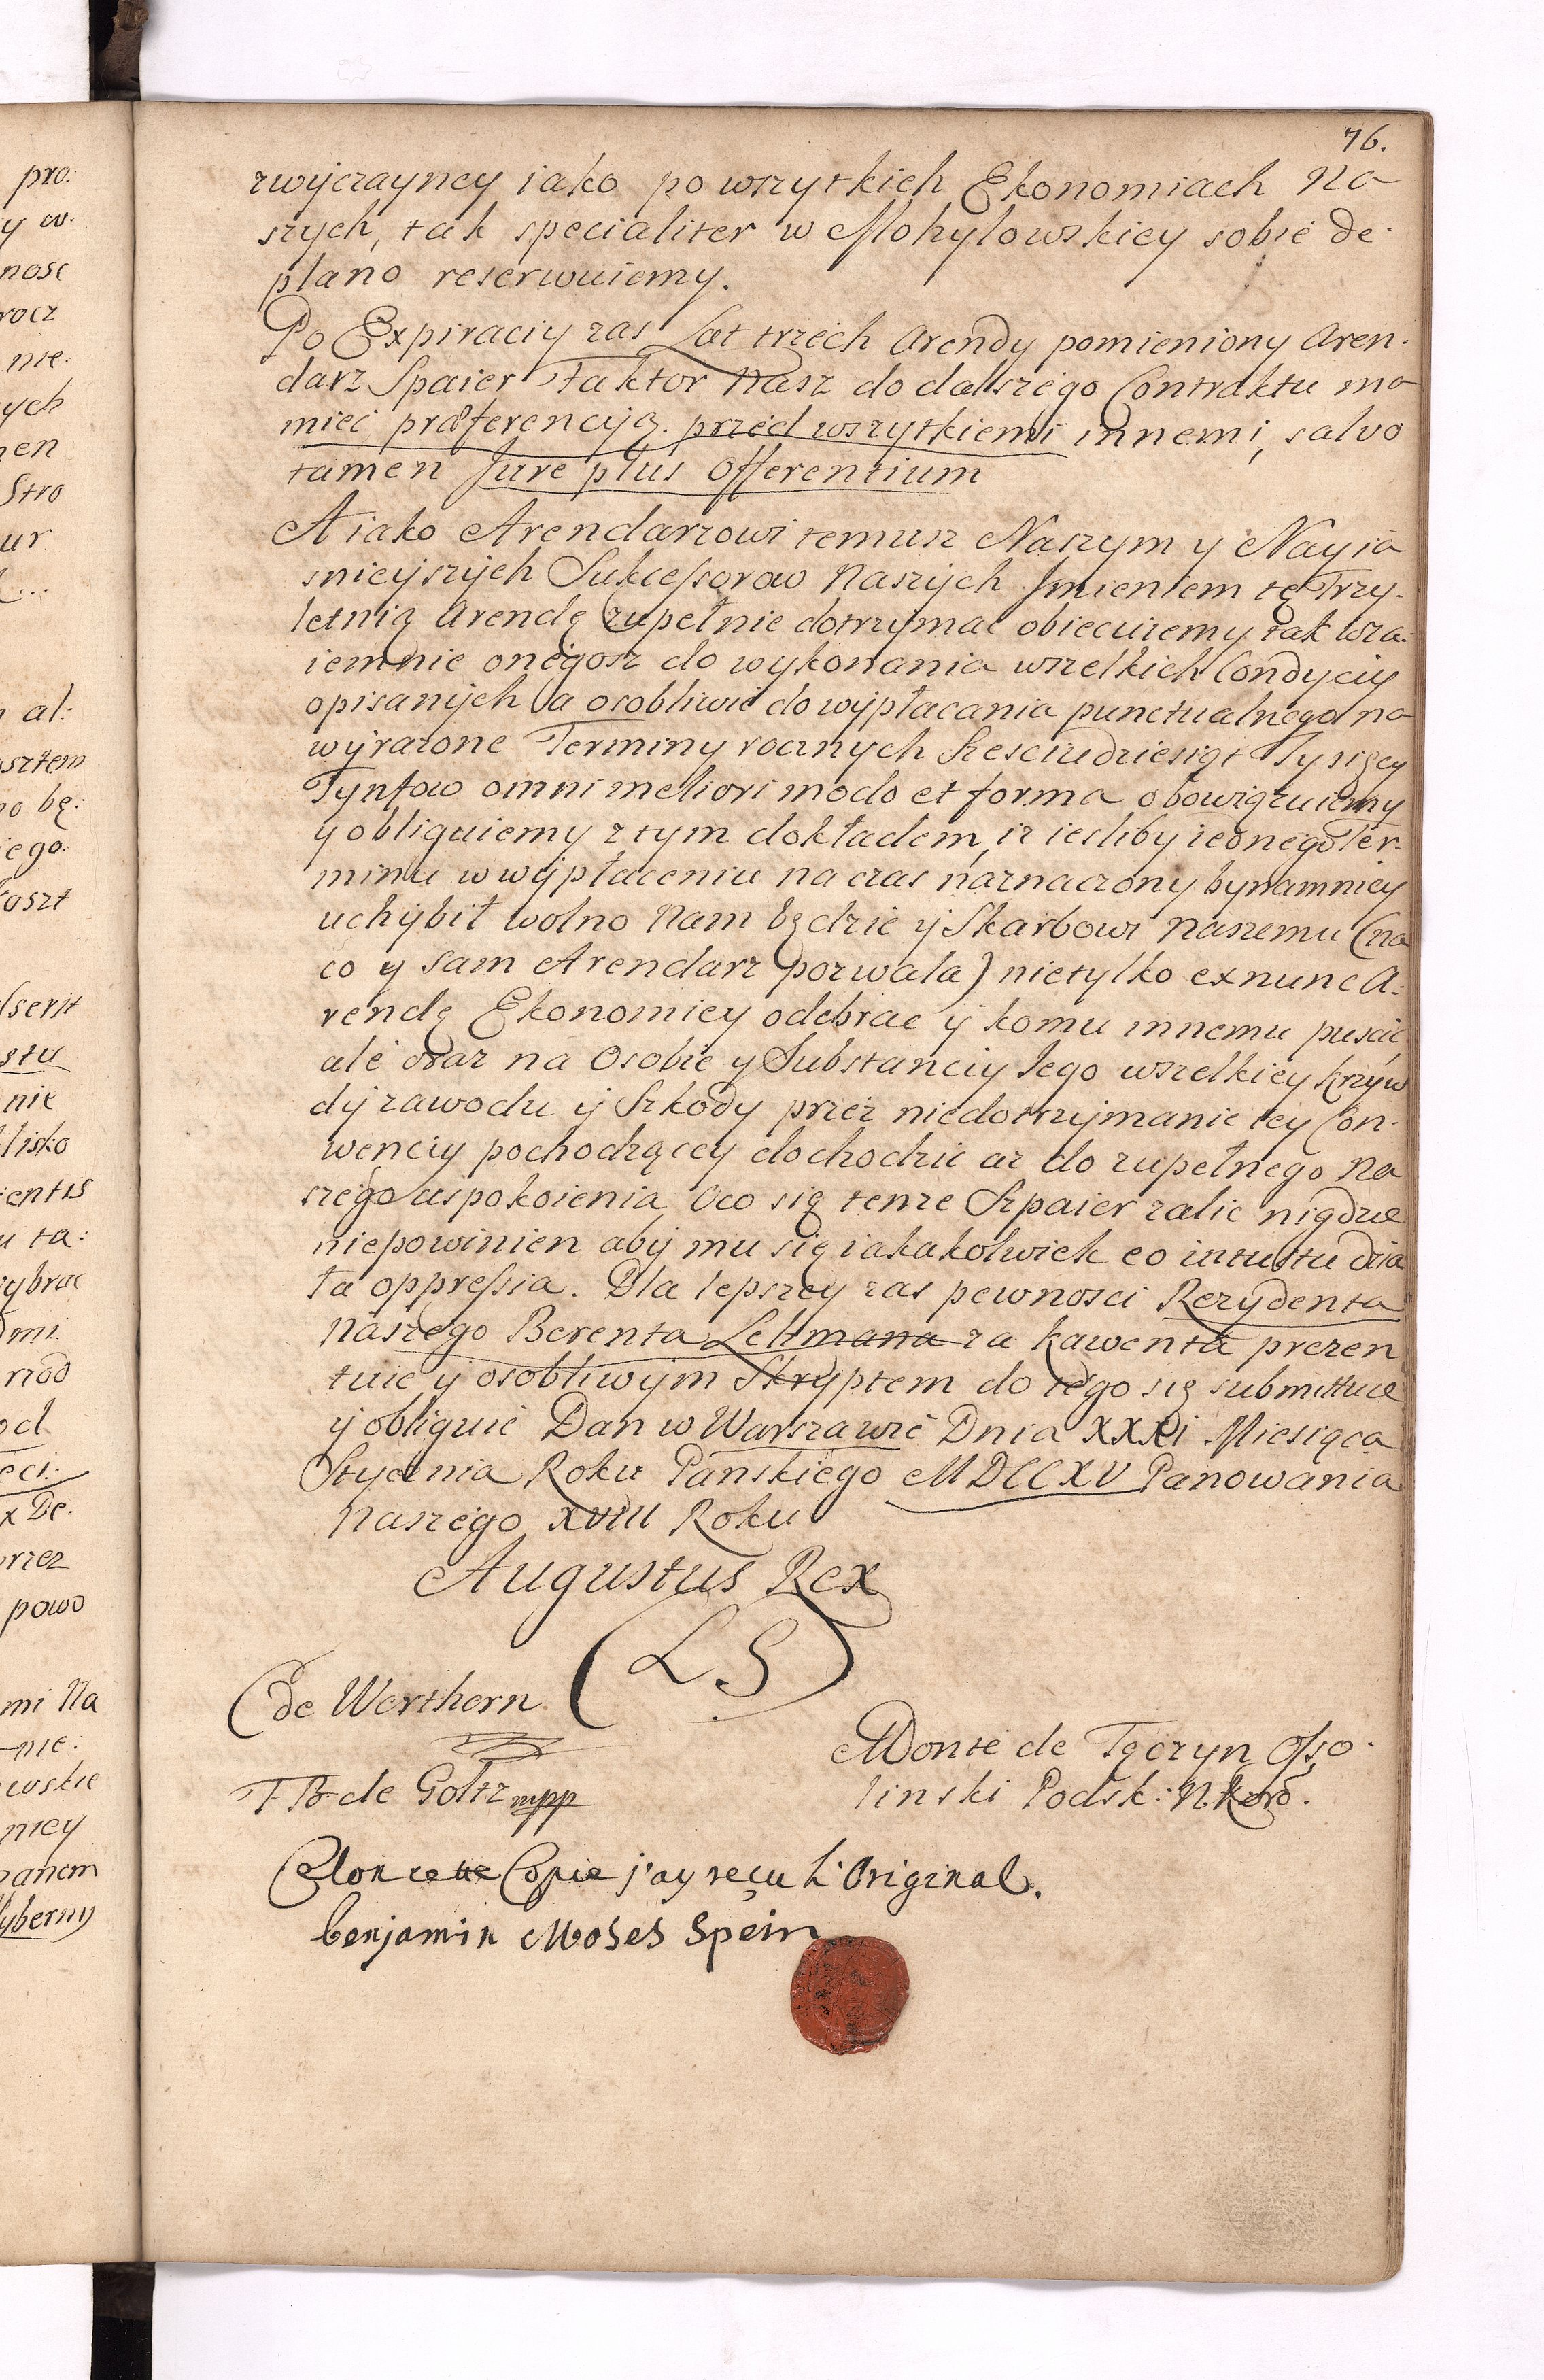 pro:
y w.
nosc
rocz
nie.
ych
men
Stro
ur
al:
osztem
no bę:
iego.
koszt
stu
nie
lisko
ientis
u ta:
ybrac
dmi
rzod
od
eci:
x De.
przez
powo
mi Na
nie.
wskie
niey
panem
76.
zwyczayney iako po wszytkich Ekonomiach Na
szych, tak specialiter w Mohylowskiey sobie de.
plano reserwuiemy.
Po Expiraciy zas Lat trzech Arendy pomieniony Aren.
darz Spaier Faktor Nasz do dalszego Contraktu ma
miec præferencyą. przed wszytkiemi innemi, salvo
tamen Jure plus Offerentium
A iako Arendarzowi temusz Naszym y Nayia
snieyszych Sukcessorow Naszych Jmieniem tę Trzy.
letnią Arendę zupełnie dotrzymac obiecuiemy tak wza.
iemnie onegosz do wykonania wszelkich Condyciy
opisanych a osobliwie do wypłacania punctualnego na
wyrazone Terminy rocznych Szesciudziesiąt Tysięcy
Tynfow omni meliori modo et forma obowiązuiemy
y obliguiemy z tym dokładem, iz iesliby iednego Ter-
minu w wypłaceniu na czas naznaczony bynamniey
uchybił wolno Nam będzie y Skarbowi Naszemu (na
co y sam Arendarz pozwala) nietylko exnunc A:
rendę Ekonomiey odebrac y komu innemu puscic,
ale oraz na Osobie y Substanciy Jego wszelkiey krzyw
dy zawodu y Szkody przez niedotrzymanie tey Con-
wenciy pochodzącey dochodzic az do zupełnego Na
szego uspokoienia Oco się tenze Szpaier zalic nigdzie
niepowinien aby mu się iakakolwiek eo intuitu dzia
ła oppressia. Dla lepszey zas pewnosci Rezydenta
Naszego Berenta Lehmana za kawenta prezen
tuie y osobliwym Skryptem do tego się submittuie
y obliguie Dan w Warszawie Dnia XXXI Miesiąca
Stycznia Roku Panskiego MDCCXV Panowania
Naszego XVIII Roku
Augustus Rex
(L S)
de Werthern
Monte de Tęczyn Osso-
T B de Goltz mpp
linski Podsk: N Kor.
Selon cette Copie j'ay reçu L'Original.
benjamin Moses Speir